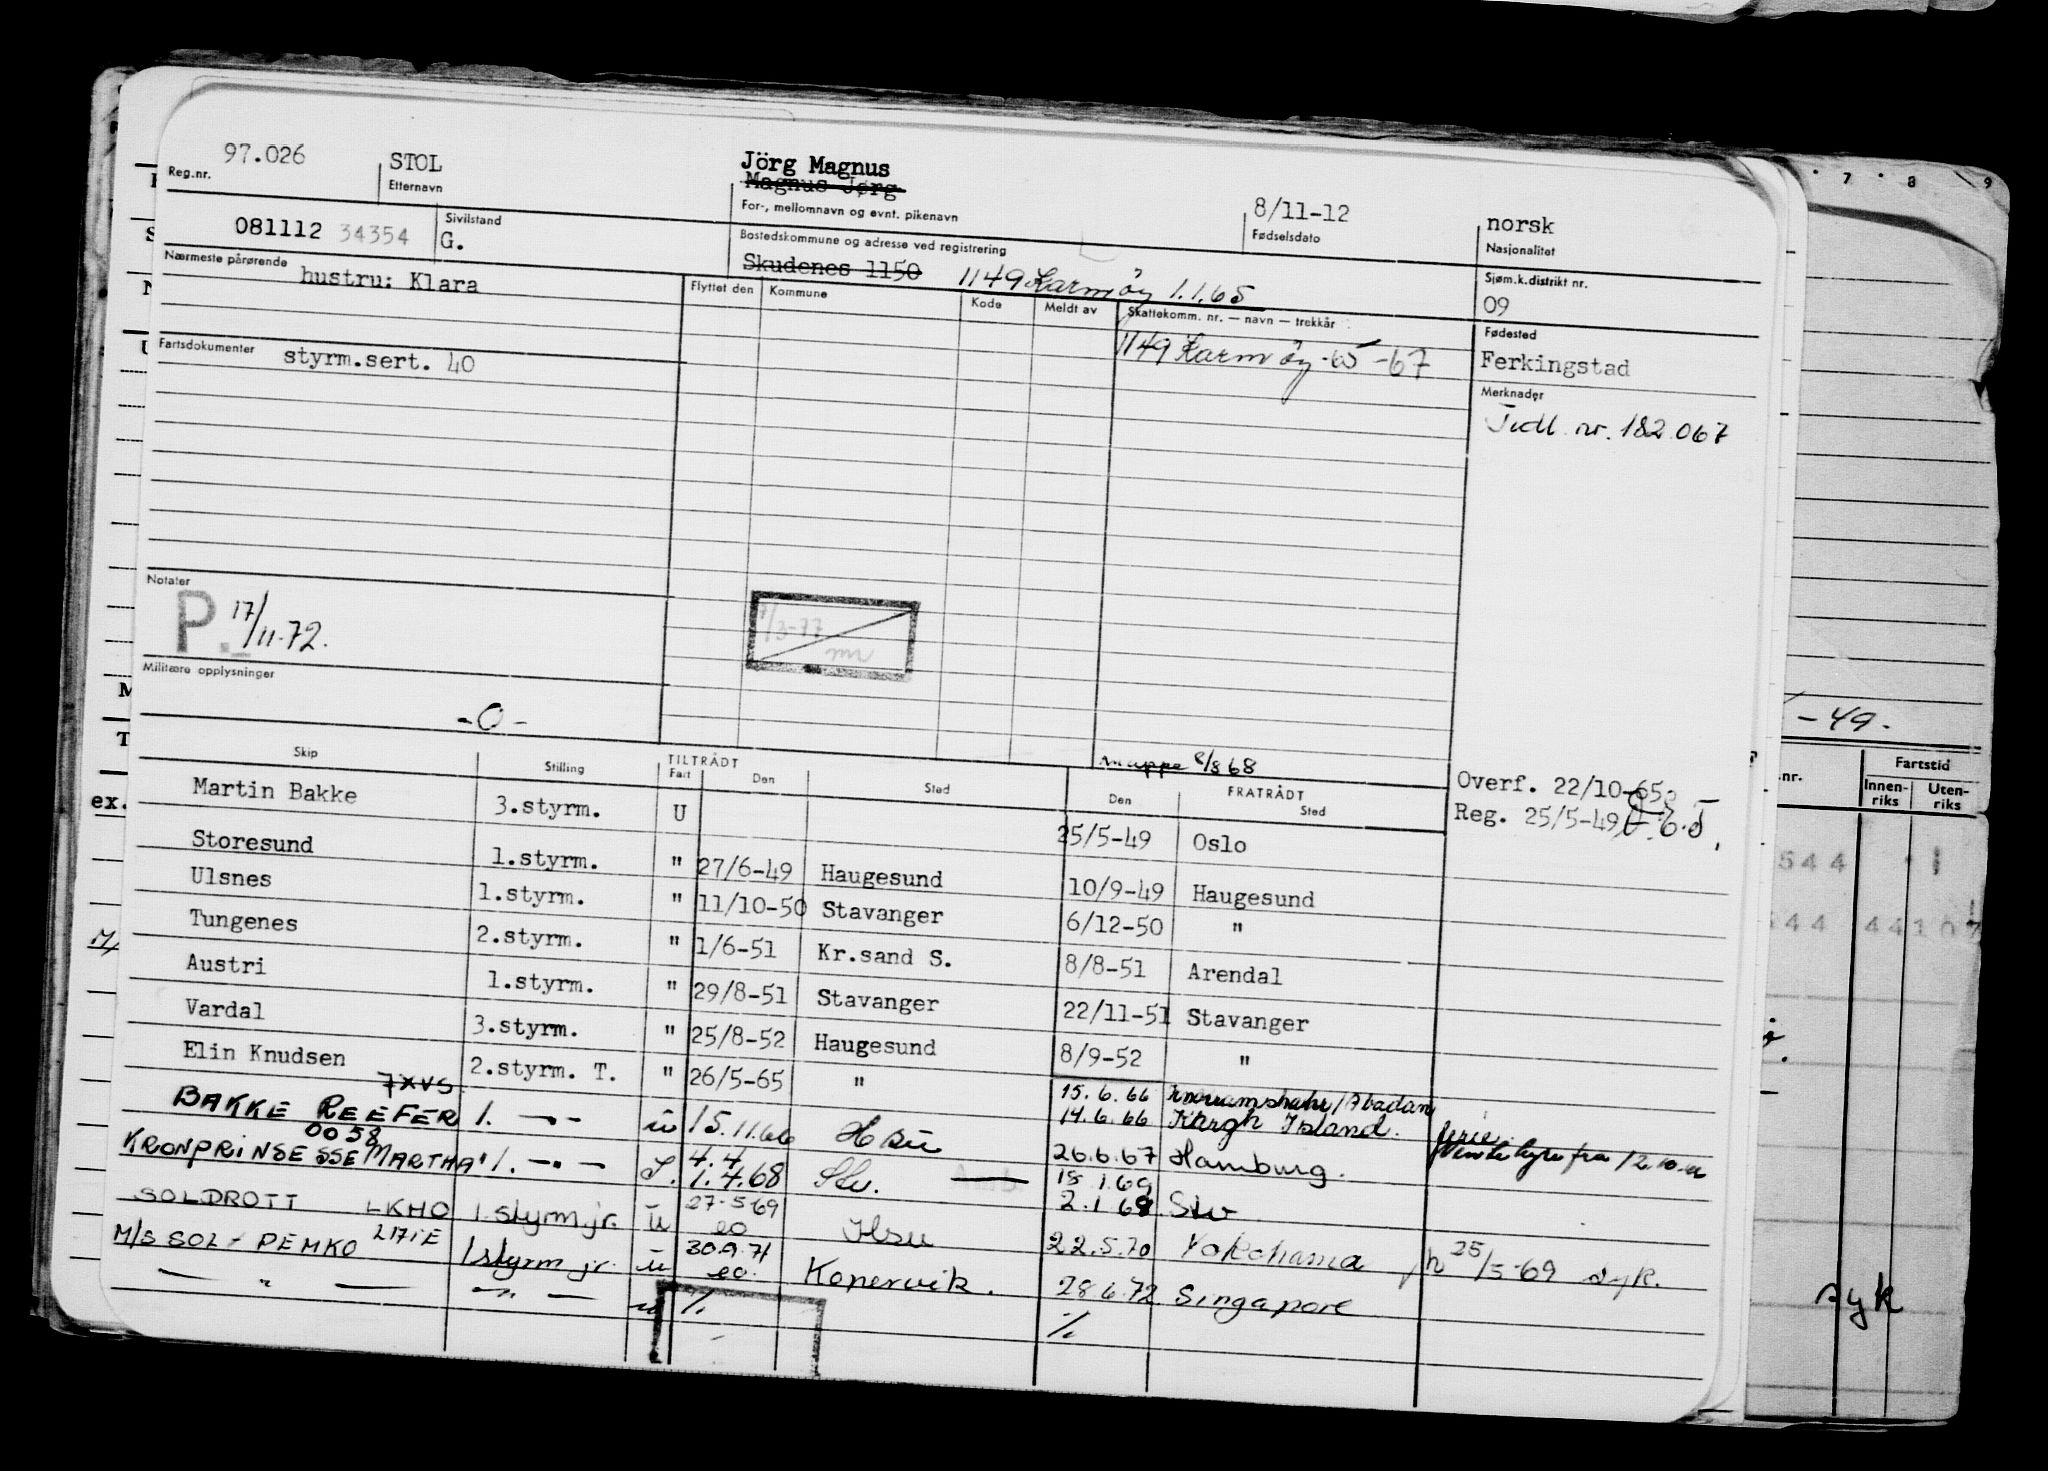 97.026 STOL Jörg Magnus
Magnus Jørg
Reg.nr. Etternavn For-, mellomnavn og evnt. pikenavn 8/11-12 Fødselsdato norsk Nasjonalitet
081112 34354 Sivilstand G. Bostedskommune og adresse ved registrering
Skudenes 1150 1149 Karmöy 1.1.65 Sjøm.k.distrikt nr. 09
Nærmeste pårørende hustru: Klara
Flyttet den Kommune Kode Meldt av Skattekomm. nr. — navn — trekkår
1149 Karmöy -65 -67
Fødested
Ferkingstad
Fartsdokumenter styrm.sert. 40
Merknader
Tidl. nr. 182.067
Notater
P. 17/11-72.
7/3-77
Militære opplysninger
-0-
Mappe 8/8 68
Overf. 22/10-65
Reg. 25/5-49
Skip Stilling TILTRÅDT Fart Den Sted FRATRÅDT Den Sted
Martin Bakke 3.styrm. U 25/5-49 Oslo
Storesund 1.styrm. " 27/6-49 Haugesund 10/9-49 Haugesund
Ulsnes 1.styrm. " 11/10-50 Stavanger 6/12-50 "
Tungenes 2.styrm. " 1/6-51 Kr.sand S. 8/8-51 Arendal
Austri 1.styrm. " 29/8-51 Stavanger 22/11-51 Stavanger
Vardal 3.styrm. " 25/8-52 Haugesund 8/9-52 "
Elin Knudsen 2.styrm. T. " 26/5-65 " 15.6.66 /Abadan
14.6.66 Kargh Island.
7XVS
BAKKE REEFER 1. -"- u 15.11.66 Hsu 26.6.67 Hamburg. ferie. fra 12.10.
0058
KRONPRINSESSE MARTHA 1. -"- 4.4
1.4.68 Slv. 18.1.69
2.1.69 Slv
SOLDROTT LKHO 1.styrm.jr. u 27-5-69
eo Hsu 22.5.70 Yokohama 25/5-69 syk.
M/S SOL-PEMKO 1styrm jr. u 30.9.71
eo. Kopervik. 28.6.72 Singapore
— " — — " — u % %
7 8 9
-49.
.nr. Fartstid
Innen-
riks Uten-
riks
544
544 44107
syk
ex.